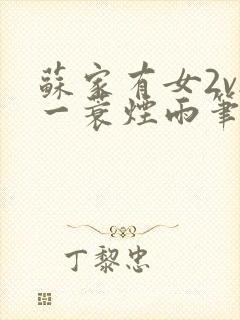 蘇家有女2v
一蓑煙雨筆
丁黎忠